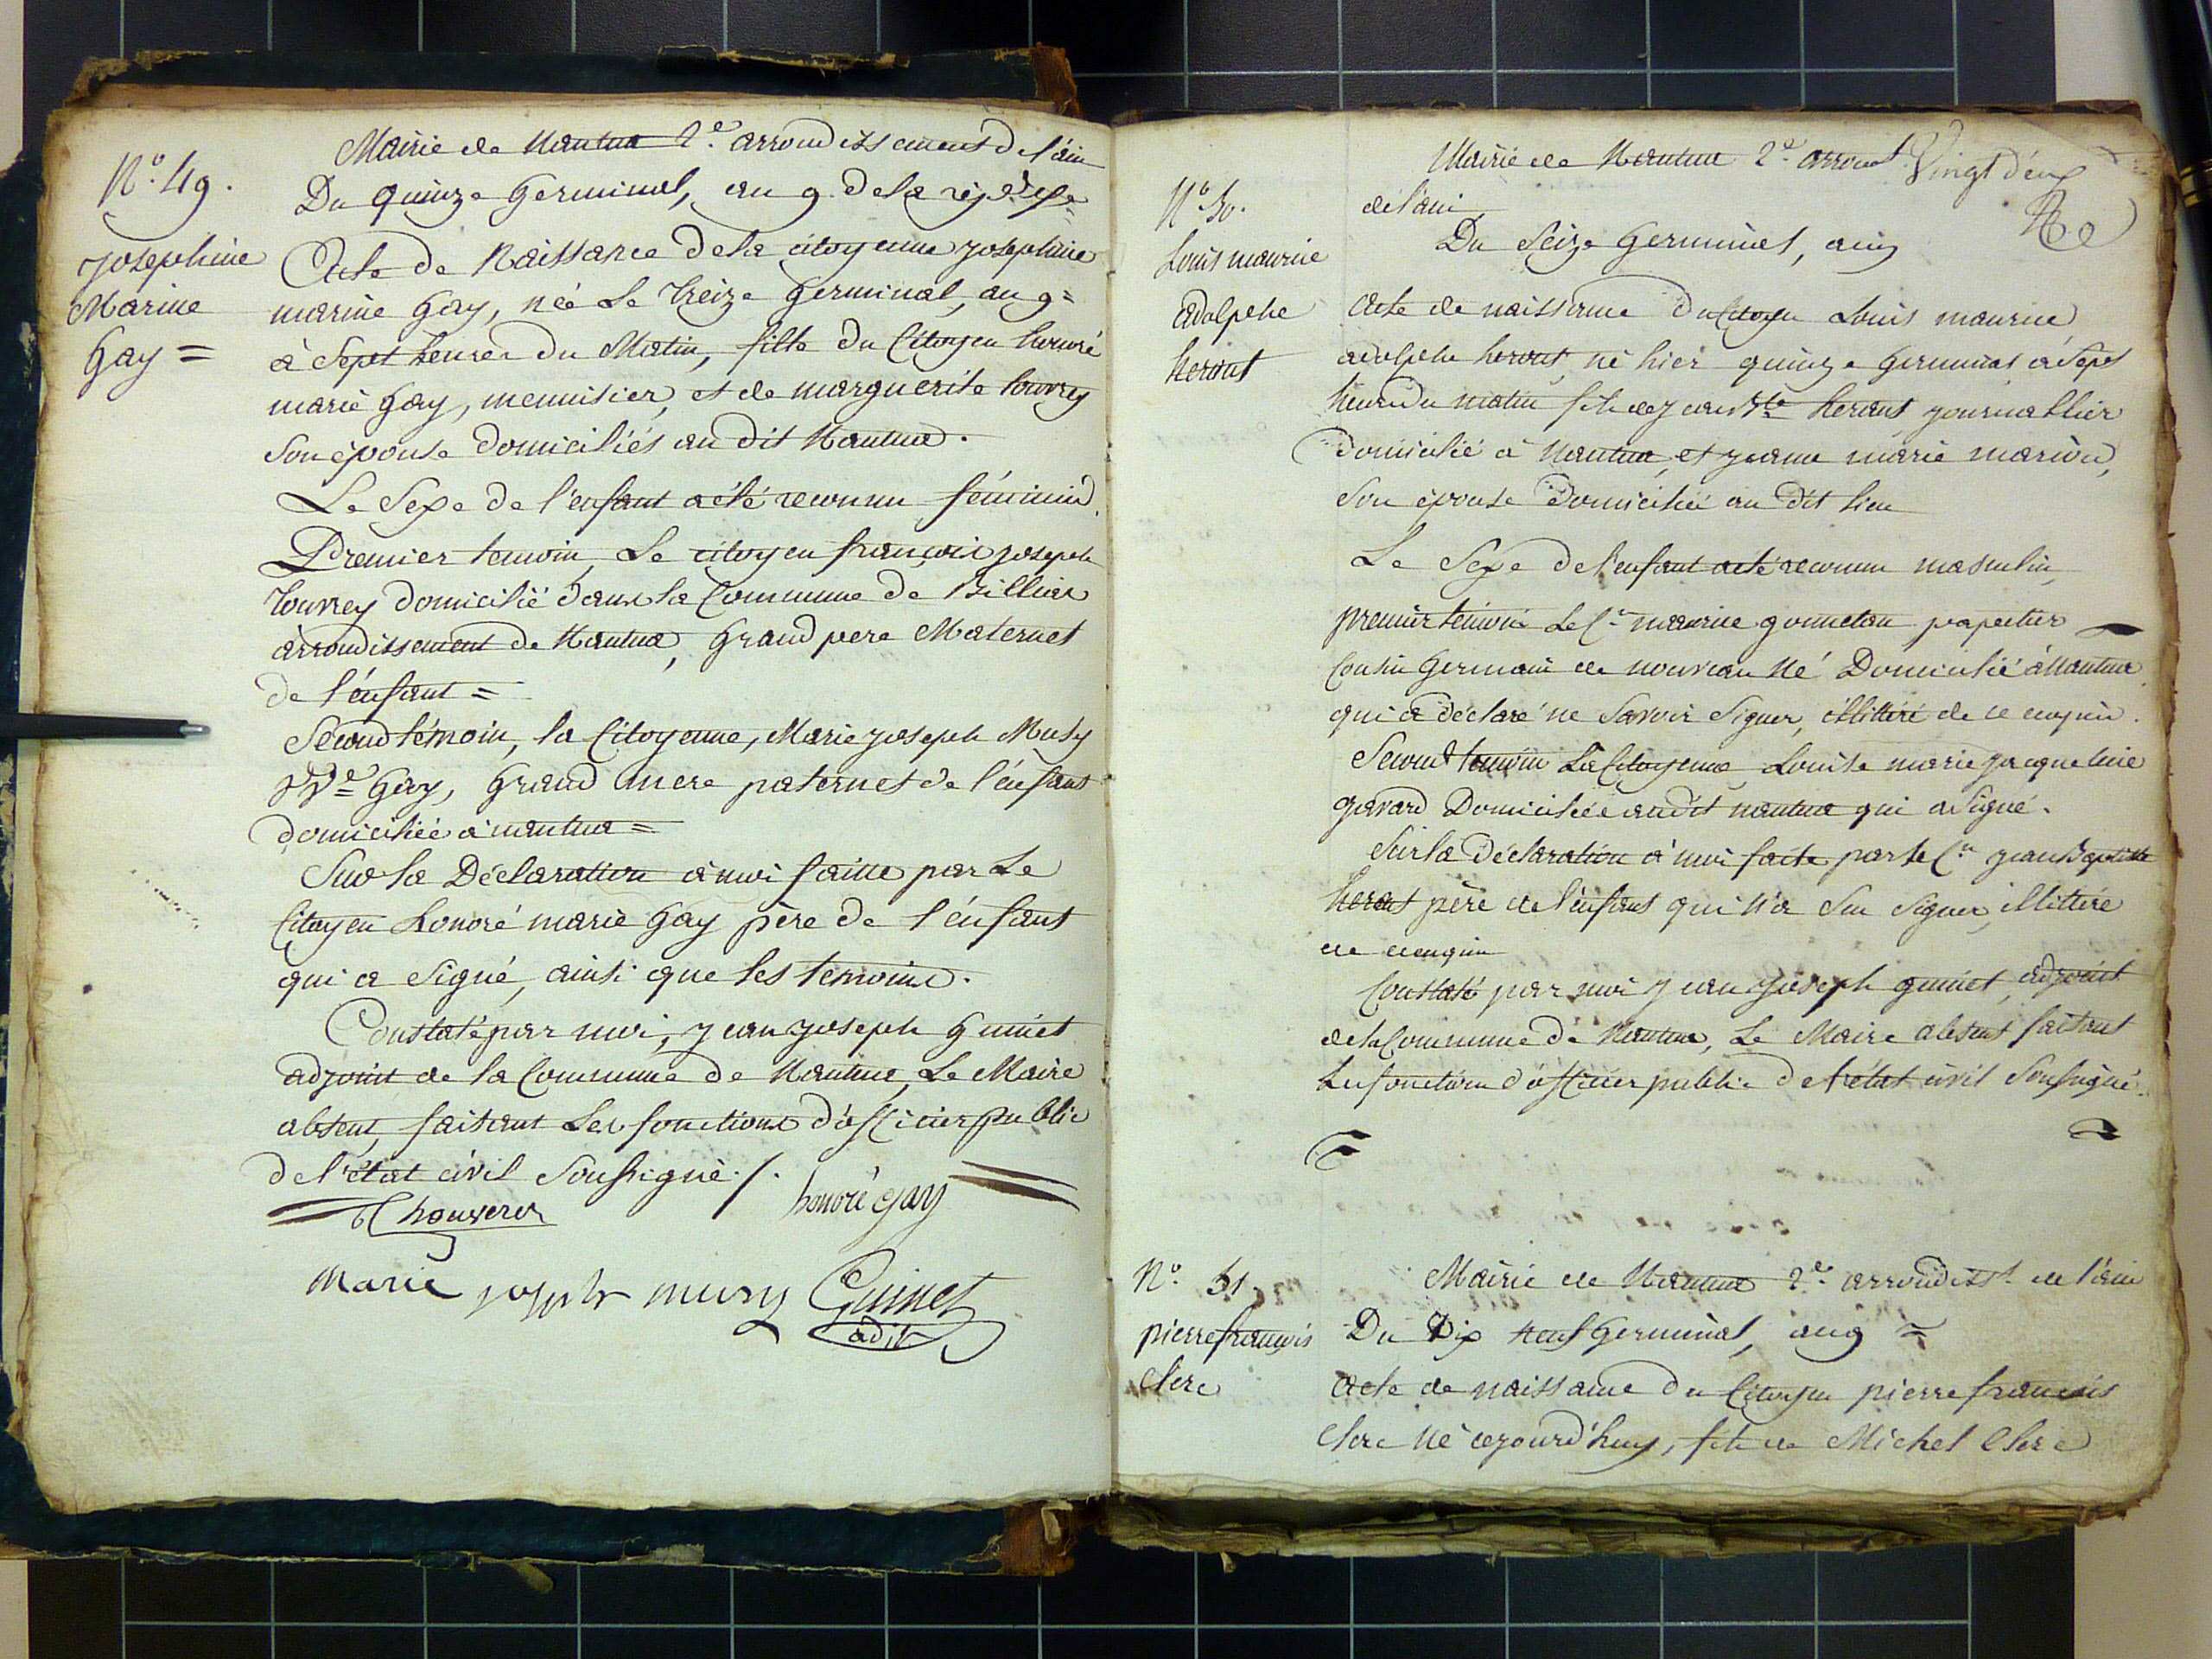 Mairie de Nantua 2e. arrondissement de l'ain
N.o 49.
Du quinze Germinal, an 9. de la rép.
Josephine
Marine
Gay =
Acte de Naissance de la citoyenne josephine
marine Gay, née Le treize Germinal, an 9=
à Sept heures du Matin, fille du Citoyen honoré
marie Gay, menuisier, et de marguerite touvrey
Son épouse domiciliés au dit Nantua.
Le Sexe de l'enfant a été reconnu féminin.
Premier temoin, Le citoyen françois joseph
touvrey domicilié dans la Commune de Billiat
arrondissement de Nantua, Grand pere Maternel
de l'énfant =
Sécond témoin, la Citoyenne, Marie joseph Musy
Vve= Gay, Grand mere paternel de l'énfant
domiciliée à nantua =
Sur la Déclaration à moi faitte par Le
Citoyen honoré marie Gay père de l'énfant
qui a Signé, ainsi que les temoins.
Constaté par moi, jean joseph Guinet
adjoint de la Commune de Nantua, Le Maire
absent, faisant Les fonctions d'officier public
de l'état civil Soussigné ./.
honoré Gay
marie joseph musy Guinet
adjt
Mairie de Nantua 2e arront Vingt deux
de l'ain
N.o 50.
Louis maurice
adolphe
herant
Du Seize Germinal, an 9
Acte de naissance du Citoyen Louis maurice
adolphe herant, né hier quinze Germinal à Sept
heures du matin fils de jean Bte herant, journallier
domicilié à Nantua, et jeanne marie marion,
Son épouse domiciliée au dit lieu
Le Sexe de l'enfant a été reconnu masculin,
premier témoin Le Cn maurice gonnetan papetier
Cousin Germain de nouveau Né Domicilié à Nantua
qui a déclaré ne Savoir Signer, illittéré de ce enquis.
Second temoin La Citoyenne Louise marie jacqueline
gavard Domiciliée audit nantua qui a Signé.
Sur la déclaration à moi faite par le Cn jean Baptiste
herant père de l'énfant qui n'a Su Signer, illittéré
de ce enquis
Constaté par moi jean joseph guinet, adjoint
de la Commune de Nantua, Le Maire absent faisant
Les fonctions d'officier public de l'état civil Soussigné.
N.o 51
pierre françois
Clerc
Mairie de Nantua 2e. arrondisst. de l'ain
Du Dix neuf Germinal, an 9 =
Acte de naissance du Citoyen pierre françois
Clerc Né cejourd'huy, fils de Michel Clerc